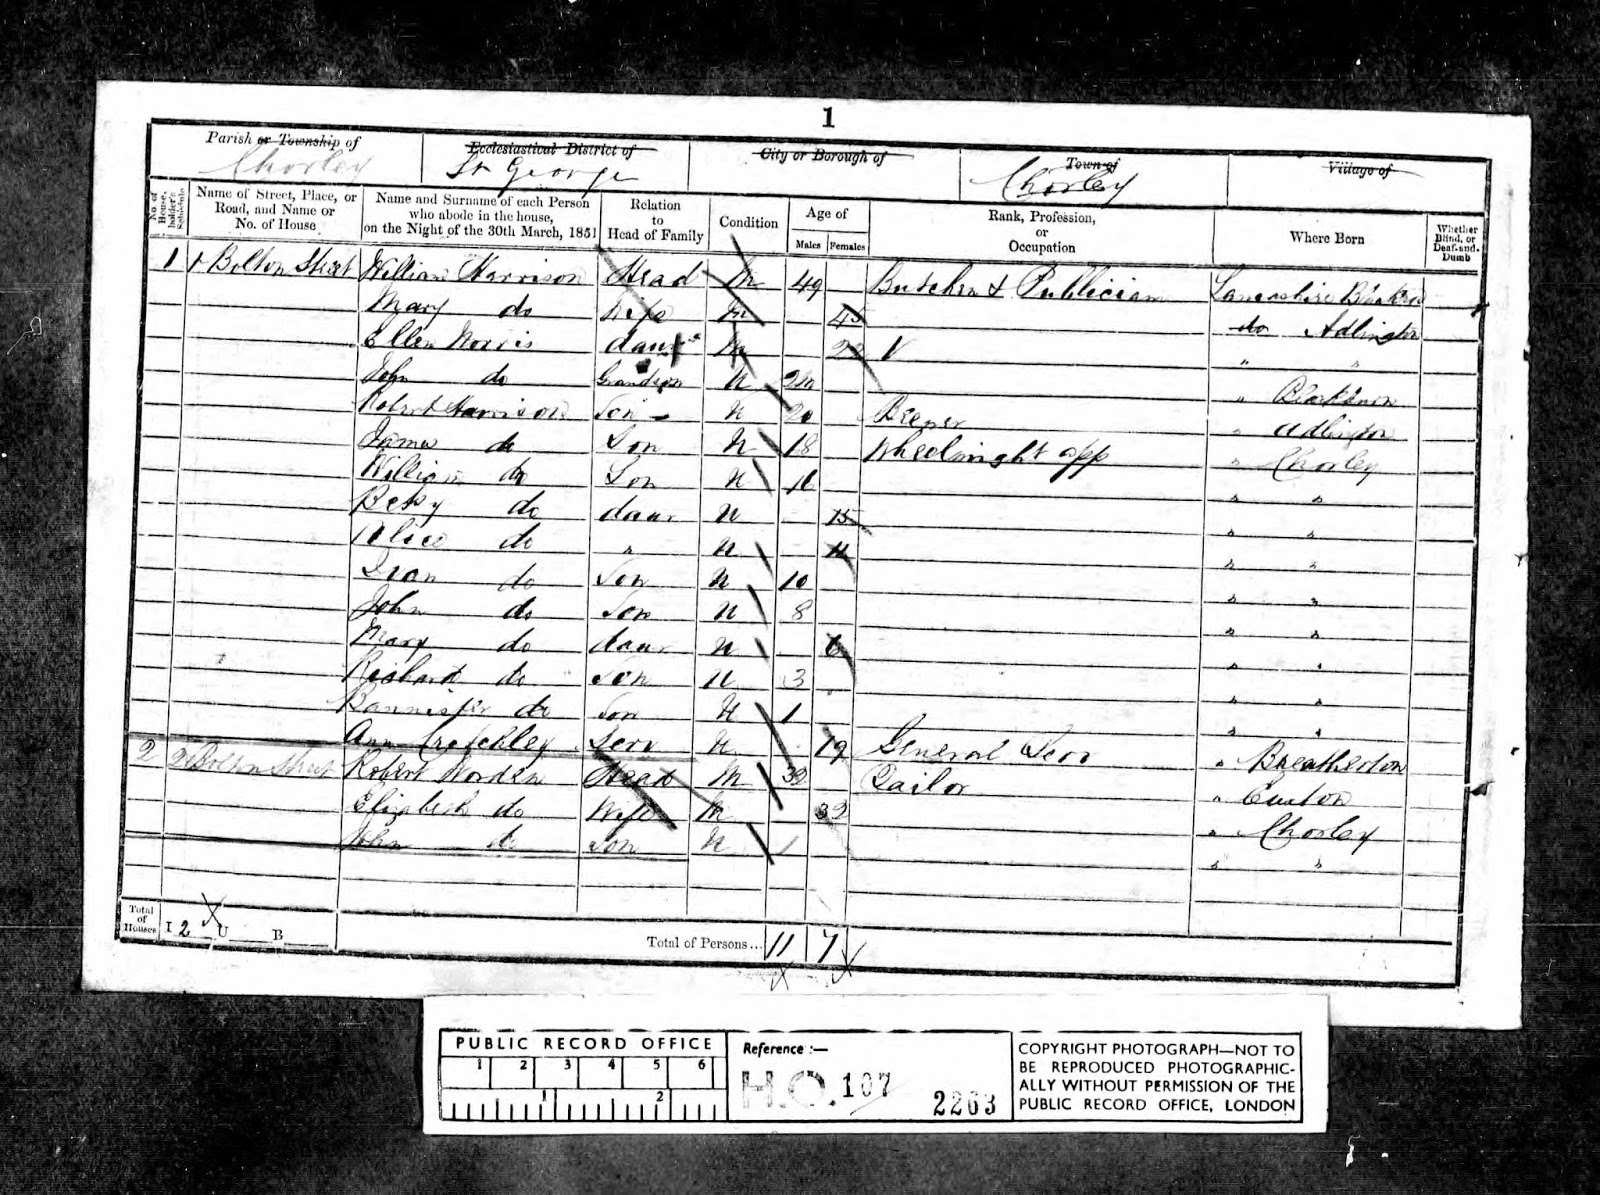 1
Parish or Township of
Chorley
Ecclesiastical District of
St George
City or Borough of
Town of
Chorley
Village of
No. of House-holder's Schedule
Name of Street, Place, or Road, and Name or No. of House
Name and Surname of each Person who abode in the house, on the Night of the 30th March, 1851
Relation to Head of Family
Condition
Age of
Males Females
Rank, Profession, or Occupation
Where Born
Whether Blind, or Deaf-and-Dumb
1 1 Bolton Street William Harrison Head M 49 Butcher & Publician Lancashire
Mary do Wife M 45 do Adlington
Ellen Norris daur M " "
John do Grandson U " Blackburn
Robert Harrison Son U 20 " Adlington
James do Son U 18 Wheelwright app " Chorley
William do Son U 16 " "
Betsy do daur U 15 " "
Alice do " U 11 " "
do Son U 10 " "
John do Son U 8 " "
Mary do daur U 6 " "
Richard do Son U 3 " "
Bannister do Son U 1 " "
Ann Critchley Serv U 19 General Serv " Breatherton
2 Bolton Street Robert Worden Head M 39 Tailor " Euxton
Elizabeth do Wife M 39 " Chorley
John do Son U 1 " "
Total of Houses I 2 U B
Total of Persons... 11 7
PUBLIC RECORD OFFICE
1 2 3 4 5 6
1 2
Reference :—
H.O. 107 / 2263
COPYRIGHT PHOTOGRAPH—NOT TO
BE REPRODUCED PHOTOGRAPHIC-
ALLY WITHOUT PERMISSION OF THE
PUBLIC RECORD OFFICE, LONDON